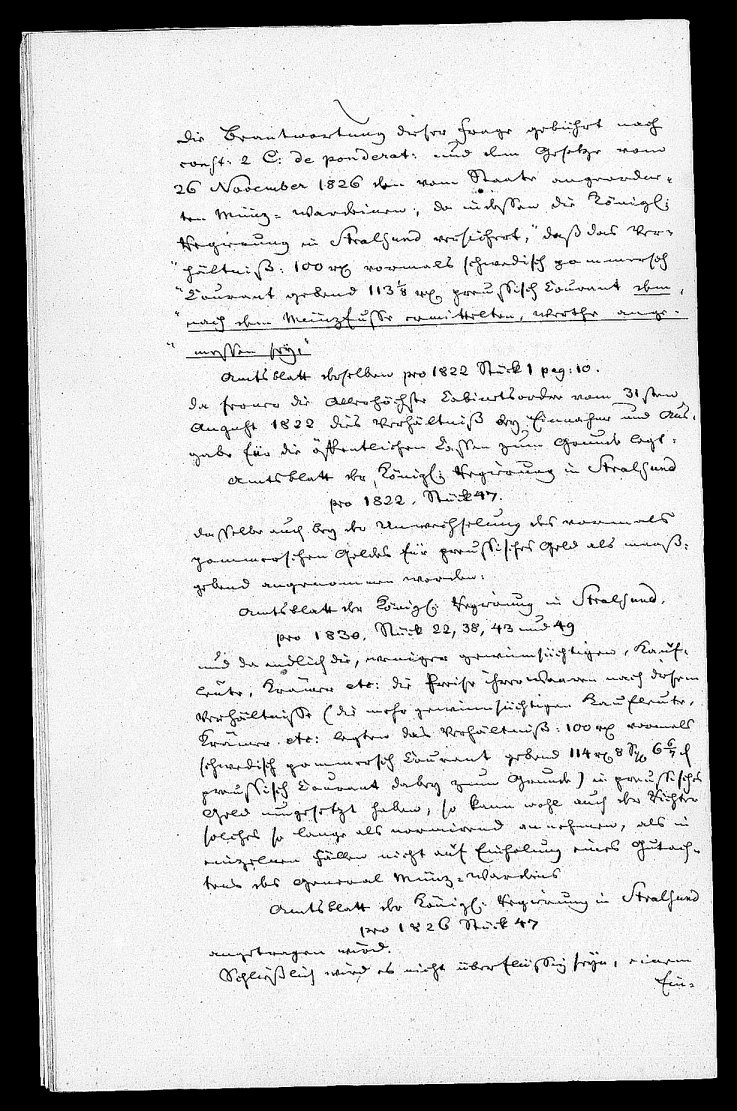 Die Beantwortung dieser Frage gebührt nach
const: 2 C: de ponderat: und dem Gesetze vom
26 November 1826 den vom Staate angeordne-
ten Münz-Wardeinen; da indessen die Königl:
Regierung in Stralsund versichert, "daß das Ver-
"hältniß: 100 rℓ vormals schwedisch pommersch
"Courant gebend 113⅛ rℓ preußisch Courant dem,
"nach dem Münzfuße ermittelten, Werthe ange-
"messen sey,"
Amtsblatt derselben pro 1822 Stück 1 pag: 10.
da ferner die Allerhöchste Cabinetsordre vom 31sten
August 1822 dies Verhältniß bey Einnahme und Aus-
gabe für die öffentlichen Cassen zum Grunde legt:
Amtsblatt der Königl: Regierung in Stralsund
pro 1822. Stück 47.
dasselbe auch bey der Umwechselung des vormals
pommerschen Geldes für preußisches Geld als maaß-
gebend angenommen worden:
Amtsblatt der Königl: Regierung in Stralsund.
pro 1830. Stück 22, 38, 43 und 49
und da endlich die, weniger gewinnsüchtigen, Kauf-
leute, Krämer etc: die Preise ihrer Waaren nach diesem
Verhältnisse (die mehr gewinnsüchtigen Kaufleute,
Krämer etc: legten das Verhältniß: 100 rℓ vormals
schwedisch pommersch Courant gebend 114 rℓ 8 Sg 6 6/7 ₰
preußisch Courant dabey zum Grunde) in preußisches
Geld umgesetzt haben, so kann wohl auch der Richter
solches so lange als normirend annehmen, als in
einzelnen Fällen nicht auf Einholung eines Gutach-
tens des General Münz-Wardeins
Amtsblatt der Königl: Regierung in Stralsund
pro 1826 Stück 47
angetragen wird.
Schließlich wird es nicht überflüssig seyn, einem
Ein-